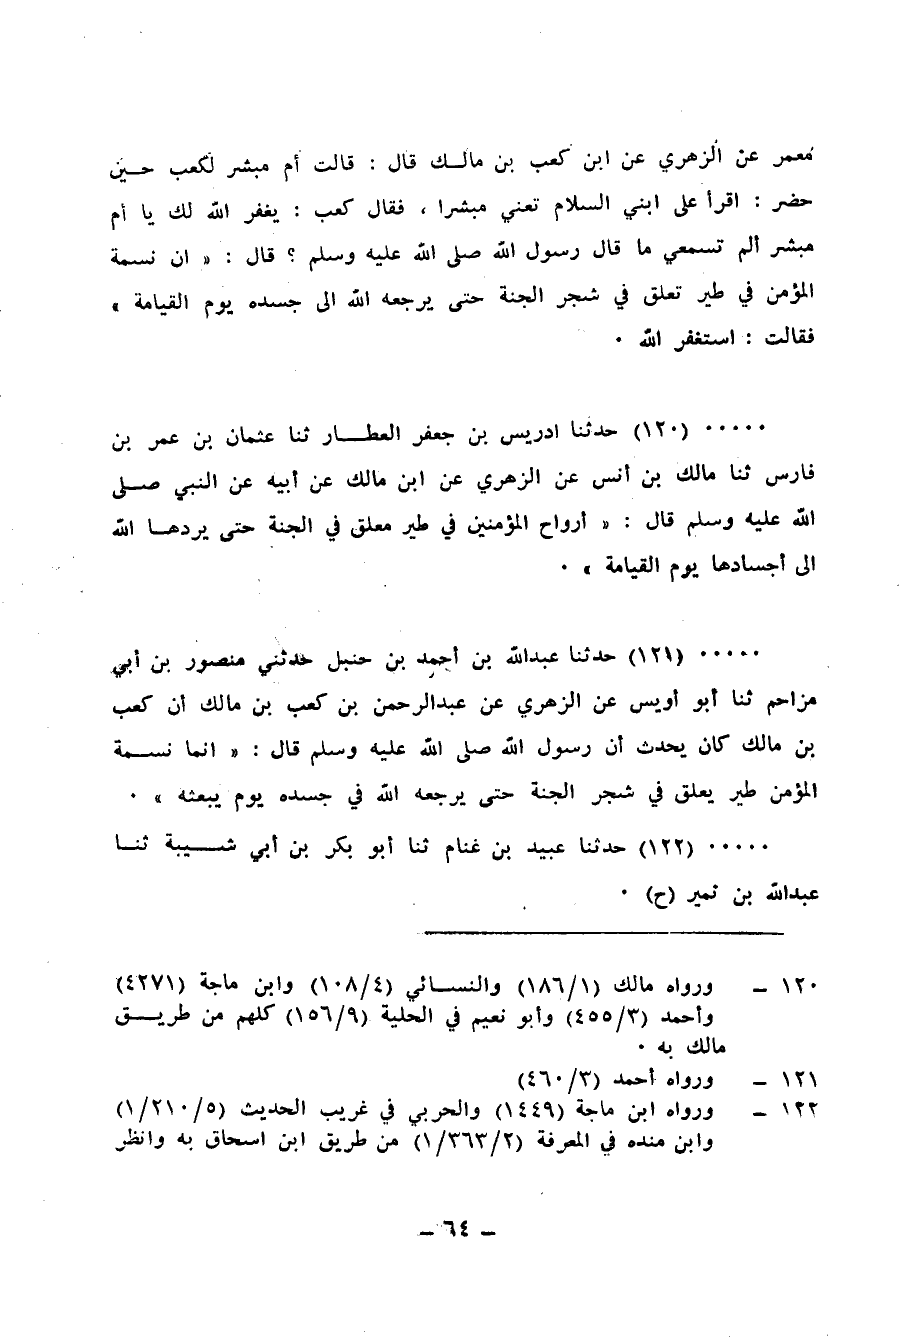 معمر عن الزهري عن ابن كعب بن مالــك قال : قالت أم مبشر لكعب حــين
حضر : اقرأ على ابني السلام تعني مبشرا ، فقال كعب : يغفر الله لك يا أم
مبشر ألم تسمعي ما قال رسول الله صلى الله عليه وسلم ؟ قال : « ان نسمة
المؤمن في طير تعلق في شجر الجنة حتى يرجعه الله الى جسده يوم القيامة »
فقالت : استغفر الله ٠
٠٠٠٠٠ (١٢٠) حدثنا ادريس بن جعفر العطــار ثنا عثمان بن عمر بن
فارس ثنا مالك بن أنس عن الزهري عن ابن مالك عن أبيه عن النبي صــلى
الله عليه وسلم قال : « أرواح المؤمنين في طير معلق في الجنة حتى يردهــا الله
الى أجسادها يوم القيامة » ٠
٠٠٠٠٠ (١٢١) حدثنا عبدالله بن أحمد بن حنبل حدثني منصور بن أبي
مزاحم ثنا أبو أويس عن الزهري عن عبدالرحمن بن كعب بن مالك أن كعب
بن مالك كان يحدث أن رسول الله صلى الله عليه وسلم قال : « انما نســمة
المؤمن طير يعلق في شجر الجنة حتى يرجعه الله في جسده يوم يبعثه » ٠
٠٠٠٠٠ (١٢٢) حدثنا عبيد بن غنام ثنا أبو بكر بن أبي شــيبة ثنــا
عبدالله بن نمير (ح) ٠
١٢٠ ــ ورواه مالك (١/١٨٦) والنســائي (٤/١٠٨) وابن ماجة (٤٢٧١)
وأحمد (٣/٤٥٥) وأبو نعيم في الحلية (٩/١٥٦) كلهم من طريــق
مالك به ٠
١٢١ ــ ورواه أحمد (٣/٤٦٠)
١٢٢ ــ ورواه ابن ماجة (١٤٤٩) والحربي في غريب الحديث (٥/٢١٠/١)
وابن منده في المعرفة (٢/٣٦٣/١) من طريق ابن اسحاق به وانظر
ــ ٦٤ ــ